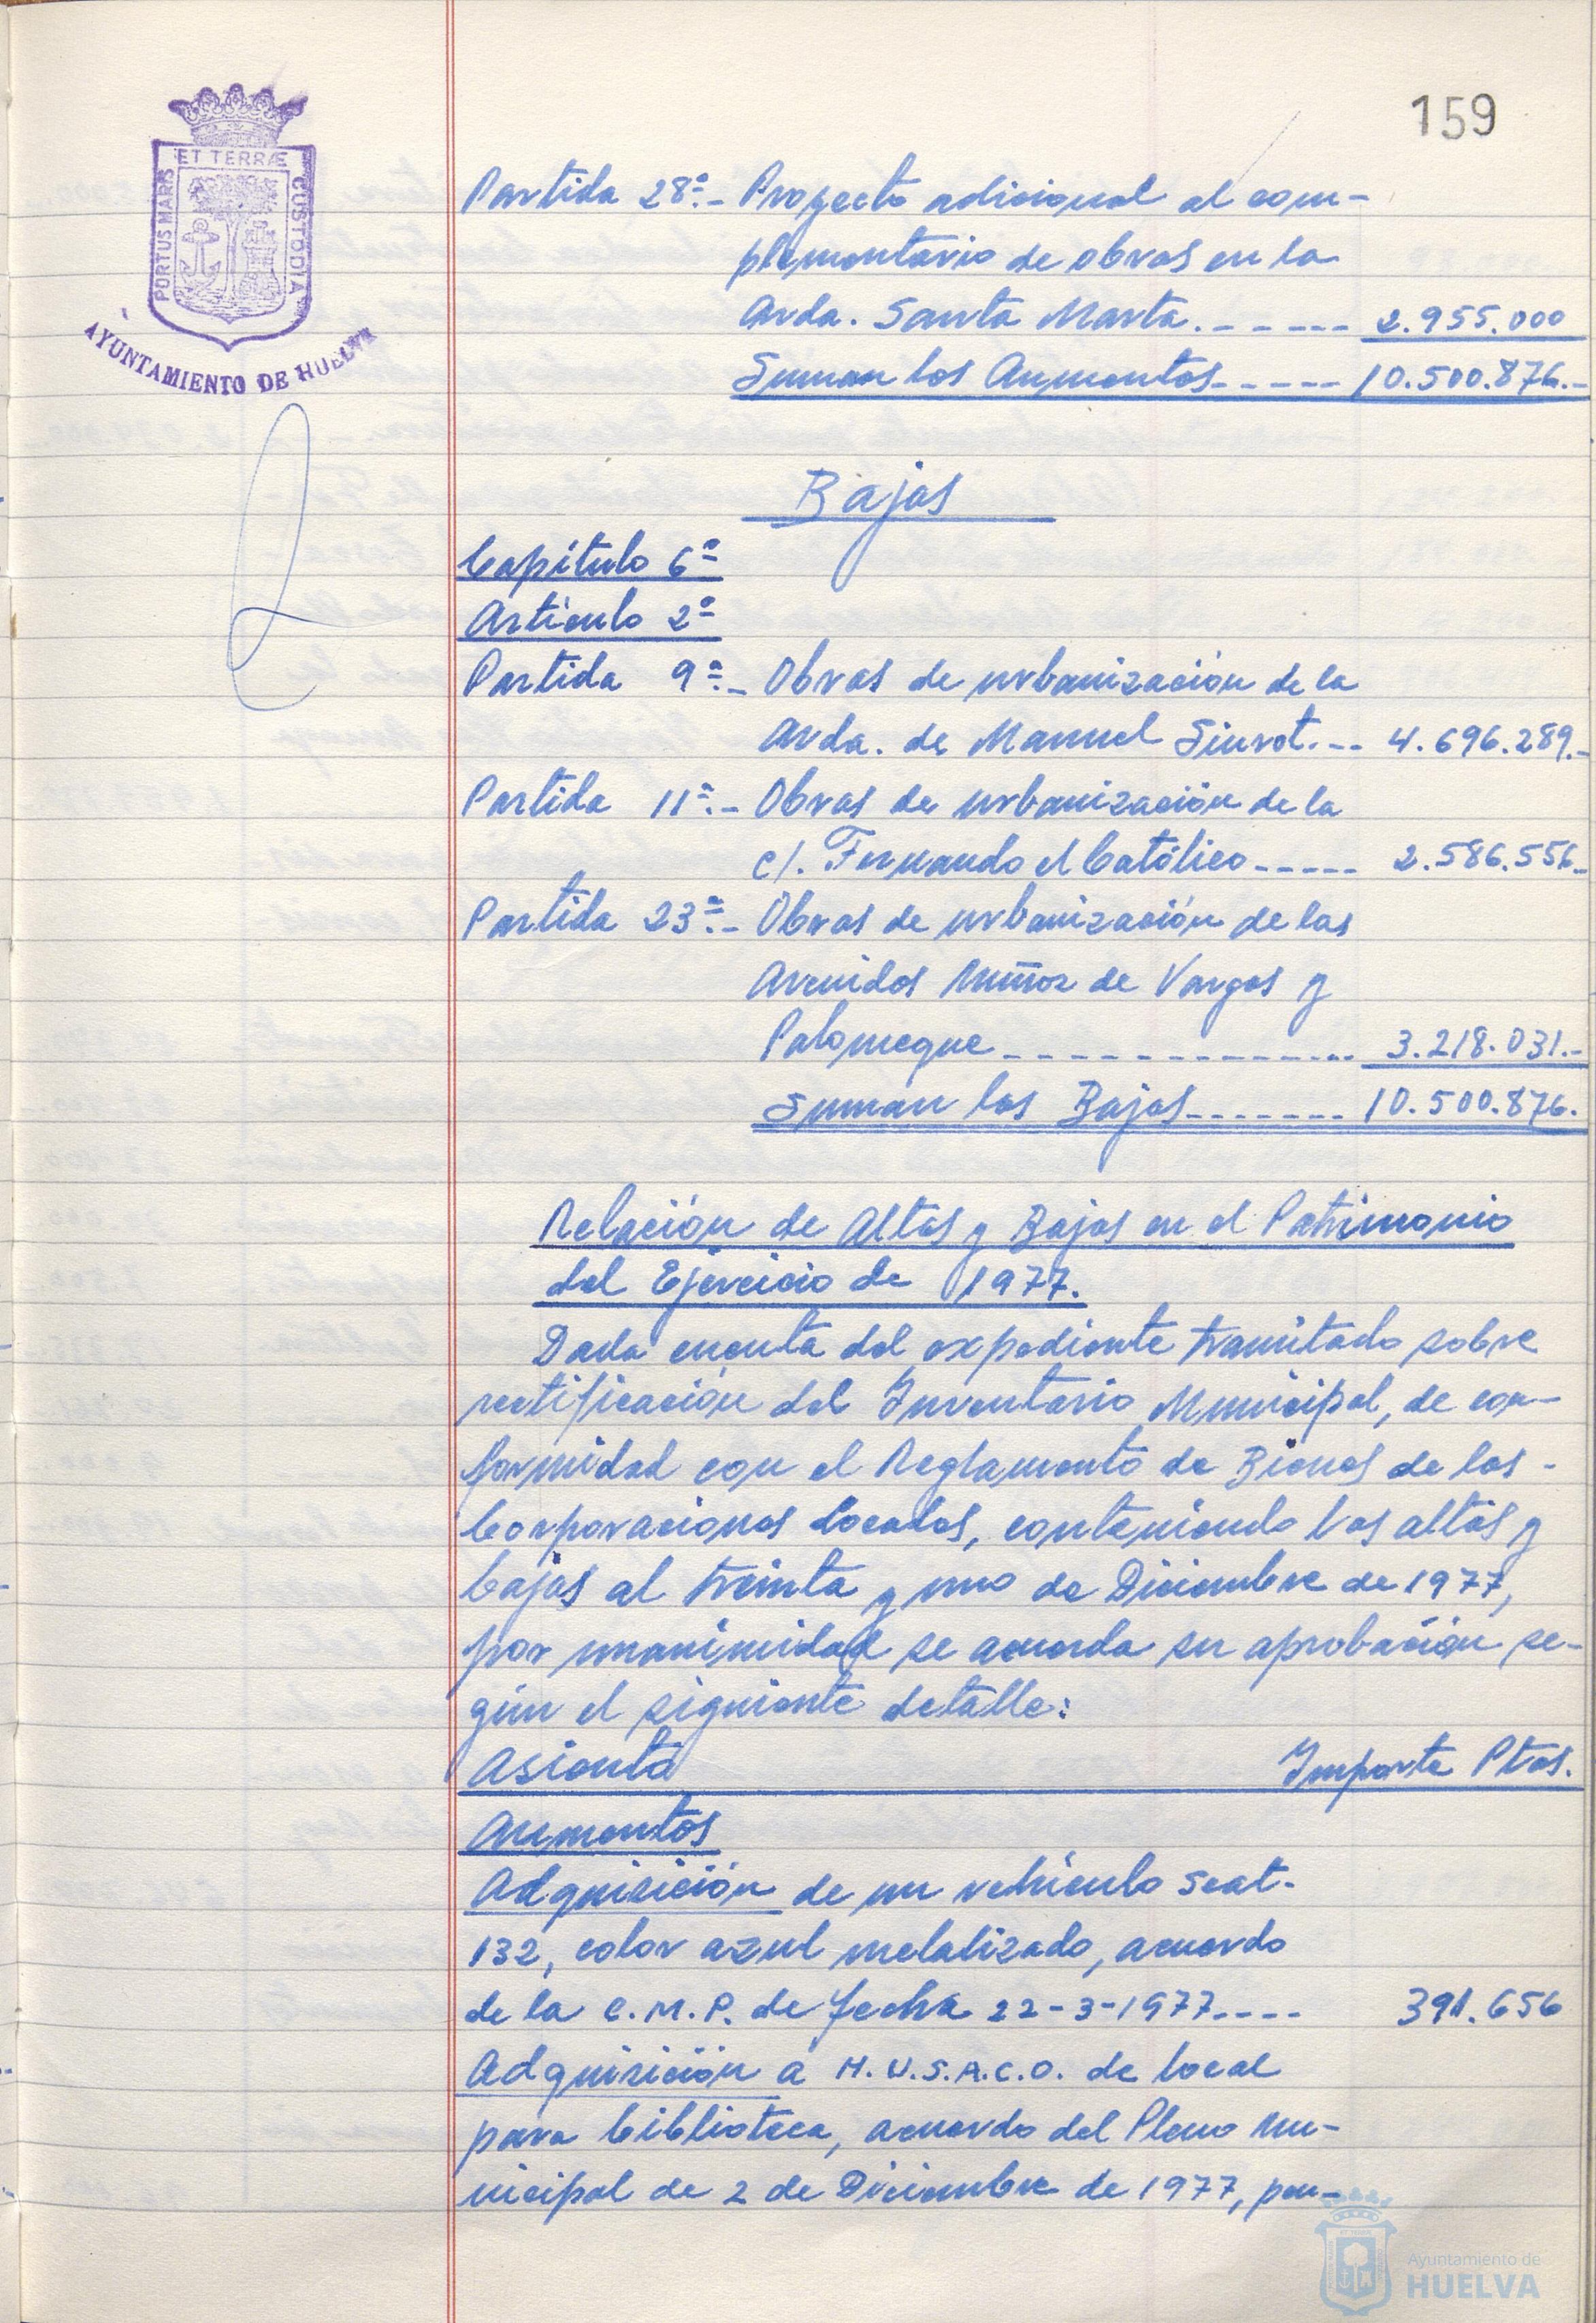 159
ET TERRÆ
PORTUS MARIS
CUSTODIA
AYUNTAMIENTO DE HUELVA
Partida 28ª.- Proyecto adicional al com-
plementario de obras en la
Avda. Santa Marta.------ 2.955.000
Suman los Aumentos----- 10.500.876.-
Bajas
Capítulo 6º
Artículo 2º
Partida 9ª.- Obras de urbanización de la
Avda. de Manuel Siurot.-- 4.696.289.-
Partida 11ª.- Obras de urbanización de la
c/. Fernando el Católico----- 2.586.556.-
Partida 23ª.- Obras de urbanización de las
Avenidas Muñoz de Vargas y
Palomeque-------------- 3.218.031.-
Suman las Bajas------- 10.500.876.
Relación de Altas y Bajas en el Patrimonio
del Ejercicio de 1977.
Dada cuenta del expediente tramitado sobre
rectificación del Inventario Municipal, de con-
formidad con el Reglamento de Bienes de las -
Corporaciones Locales, conteniendo las altas y
bajas al treinta y uno de Diciembre de 1977,
por unanimidad se acuerda su aprobación se-
gún el siguiente detalle:
Asiento Importe Ptas.
Aumentos
Adquisición de un vehículo Seat-
132, color azul metalizado, acuerdo
de la C.M.P. de fecha 22-3-1977---- 391.656
Adquisición a M.U.S.A.C.O. de local
para biblioteca, acuerdo del Pleno Mu-
nicipal de 2 de Diciembre de 1977, pen-
Ayuntamiento de
HUELVA